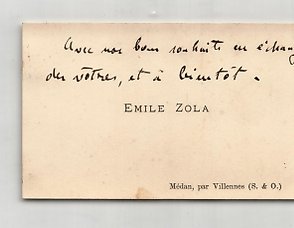 Avec nos bons souhaits en échang
des vôtres, et à bientôt.
EMILE ZOLA
Médan, par Villennes (S. & O.)